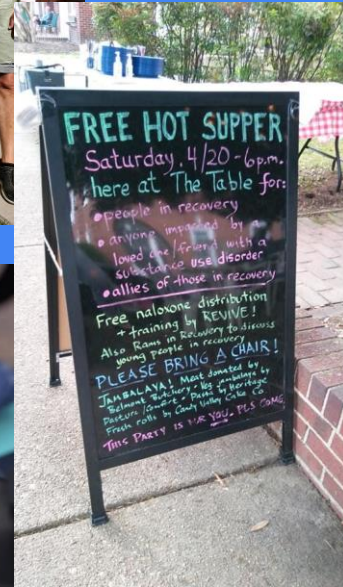 FREE HOT SUPPER
Saturday, 4/20 - 6p.m.
here at The Table for:
• people in recovery
• anyone impacted by a
loved one/friend with a
substance use disorder
• allies of those in recovery
Free naloxone distribution
+ training by REVIVE!
Also Rams in Recovery to discuss
young people in recovery
PLEASE BRING A CHAIR!
JAMBALAYA! Meat donated by
Belmont Butchery. Veg jambalaya by
Pasture/Comfort. Pasta by Heritage
Fresh rolls by Candy Valley Cake Co.
THIS PARTY IS FOR YOU. PLS COME.